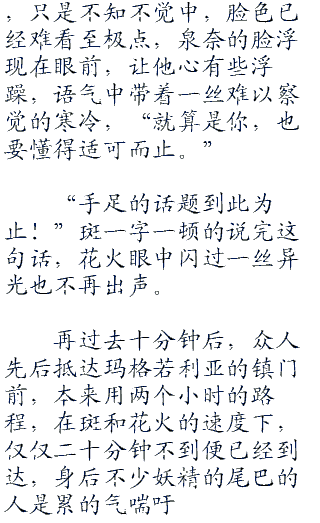 ，只是不知不觉中，脸色已
经难看至极点，泉奈的脸浮
现在眼前，让他心有些浮
躁，语气中带着一丝难以察
觉的寒冷，“就算是你，也
要懂得适可而止。”
“手足的话题到此为
止！”斑一字一顿的说完这
句话，花火眼中闪过一丝异
光也不再出声。
再过去十分钟后，众人
先后抵达玛格若利亚的镇门
前，本来用两个小时的路
程，在斑和花火的速度下，
仅仅二十分钟不到便已经到
达，身后不少妖精的尾巴的
人是累的气喘吁